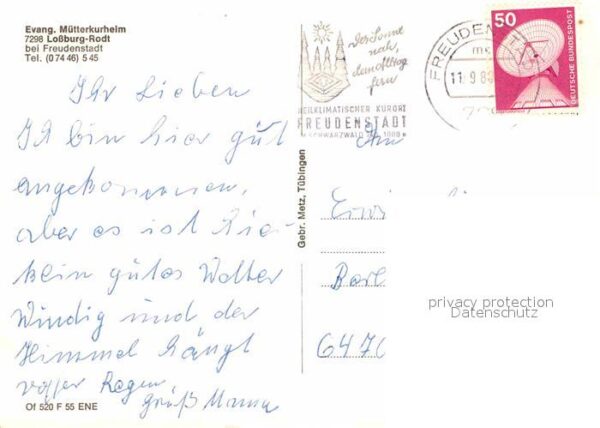 Evang. Mütterkurheim
7298 Loßburg-Rodt
bei Freudenstadt
Tel. (0 74 46) 5 45
Ihr Lieben
Ich bin hier gut
angekommen,
aber es ist hie
kein gutes Wetter
Windig und der
Himmel hängt
voller Regen,
Gruß Mama
Of 520 F 55 ENE
Gebr. Metz, Tübingen
Der Sonne
nah,
dem Alltag
fern
HEILKLIMATISCHER KURORT
FREUDENSTADT
SCHWARZWALD
FREUDENSTADT
11.9.8
50
DEUTSCHE BUNDESPOST
An
6470
privacy protection
Datenschutz